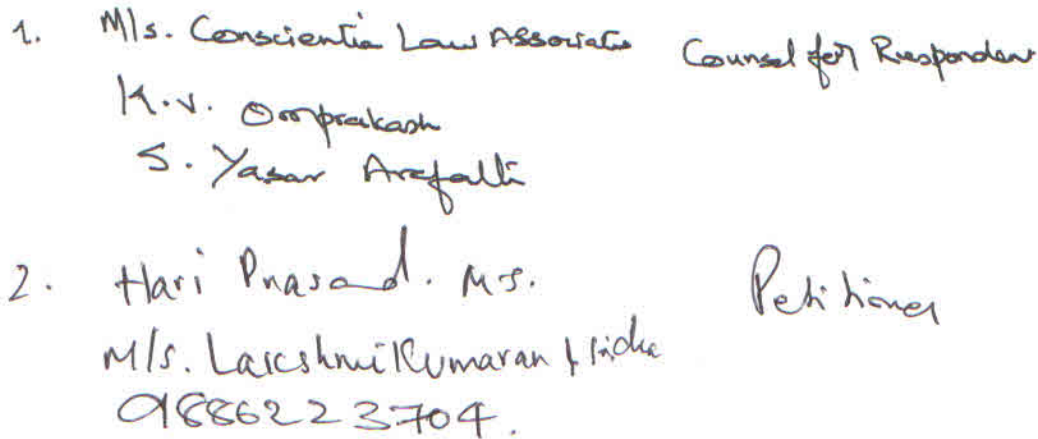 1. M/s. Conscientia Law Associates Counsel for Respondent
K.V. Omprakash
S. Yasar Arafalli
2. Hari Prasad. M.S. Petitioner
M/s. Lakshmikumaran &
9886223704.